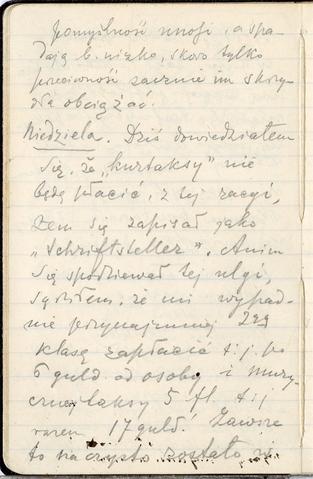 pomyślność unosi, a spa-
dają b. nizko, skoro tylko
przeciwność zacznie im skrzy-
dła obciążać.
Niedziela. Dziś dowiedziałem
się, że „kurtaksy" nie
będę płacić, z tej racyi,
żem się zapisał jako
„Schriftsteller". Anim
się spodziewał tej ulgi,
sądziłem, że mi wypad-
nie przynajmniej 2gą
klasę zapłacić t.j. po
6 guld. od osoby i muzy-
cznej taksy 5 fl. t.j.
razem 17 guld. Zawsze
to na czysto zostało